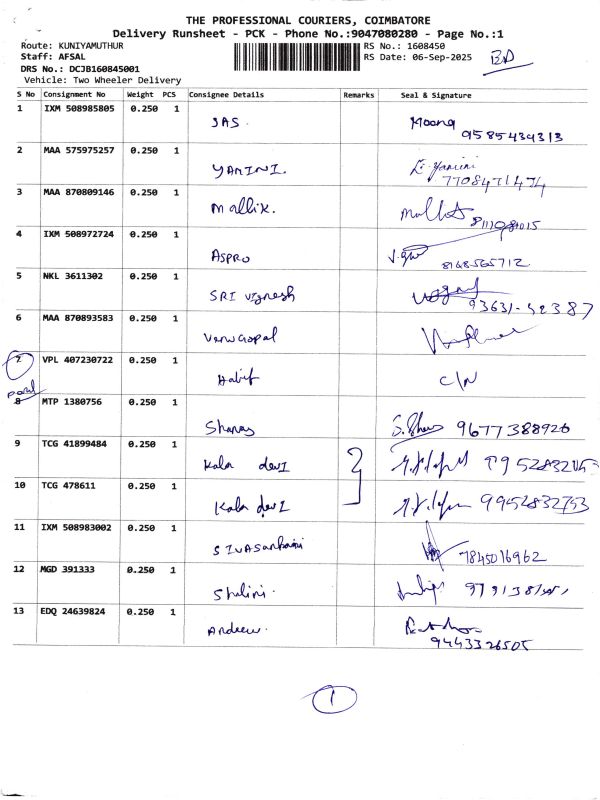 THE PROFESSIONAL COURIERS, COIMBATORE
Delivery Runsheet - PCK - Phone No.:9047080280 - Page No.:1
Route: KUNIYAMUTHUR RS No.: 1608450
Staff: AFSAL RS Date: 06-Sep-2025
DRS No.: DCJB160845001
Vehicle: Two Wheeler Delivery
S No Consignment No Weight PCS Consignee Details Remarks Seal & Signature
1 IXM 508985805 0.250 1
JAS.
9585434313
2 MAA 575975257 0.250 1
YAMINI.
7708471474
3 MAA 870809146 0.250 1
Mallik.
4 IXM 508972724 0.250 1
ASPRO
8168565712
5 NKL 3611302 0.250 1
SRI Vignesh
93631-52387
6 MAA 870893583 0.250 1
Venugopal
7 VPL 407230722 0.250 1
Habif C/N
8 MTP 1380756 0.250 1
9677388920
9 TCG 41899484 0.250 1
Kala devI
10 TCG 478611 0.250 1
Kala devI 9952832753
11 IXM 508983002 0.250 1
7845016962
12 MGD 391333 0.250 1
Shalini.
13 EDQ 24639824 0.250 1
Andrew.
9443326505
1